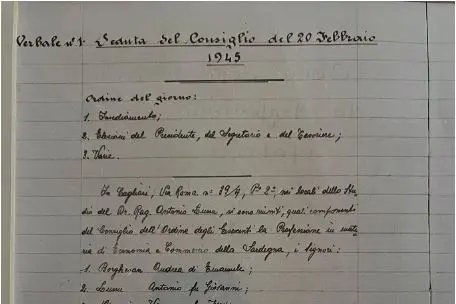 Verbale n° 1 Seduta del Consiglio del 20 Febbraio
1945
Ordine del giorno:
1. Insediamento;
2. Elezioni del Presidente, del Segretario e del Tesoriere;
3. Varie.
In Cagliari, Via Roma n° 39/4, P° 2°, nei locali dello Stu
dio del Dr. Rag. Antonio si sono riuniti, quali componenti
del Consiglio dell'Ordine degli Esercenti la Professione in mate
ria di Economia e Commercio della Sardegna, i Signori:
1. Borghesan Andrea di Emanuele;
2. Antonio fu Giovanni;